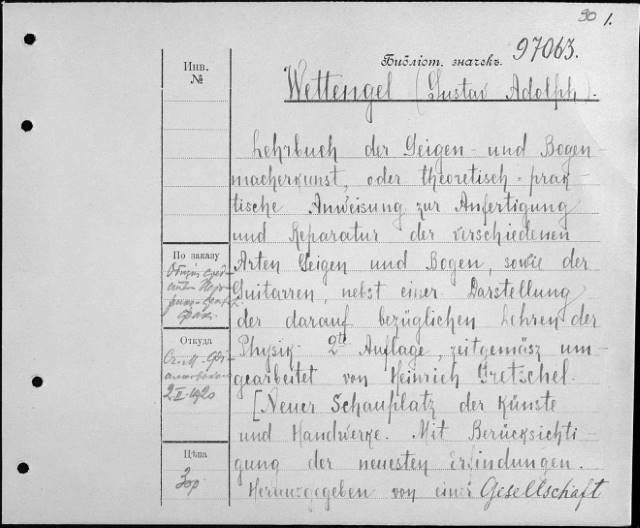 90 1.
Библіот. значекъ. 97063.
Инв.
№
Wettengel (Gustav Adolph).
Lehrbuch der Geigen- und Bogen-
macherkunst, oder theoretisch-prak-
tische Anweisung zur Anfertigung
und Reparatur der verschiedenen
Arten Geigen und Bogen, sowie der
Guitarren, nebst einer Darstellung
der darauf bezüglichen Lehren der
Physik. 2te Auflage, zeitgemäsz um-
gearbeitet von Heinrich Gretschel.
[Neuer Schauplatz der Künste
und Handwerke. Mit Berücksichti-
gung der neuesten Erfindungen.
Herausgegeben von einer Gesellschaft
По заказу
Откуда
2.II.1920
Цѣна
3 ор